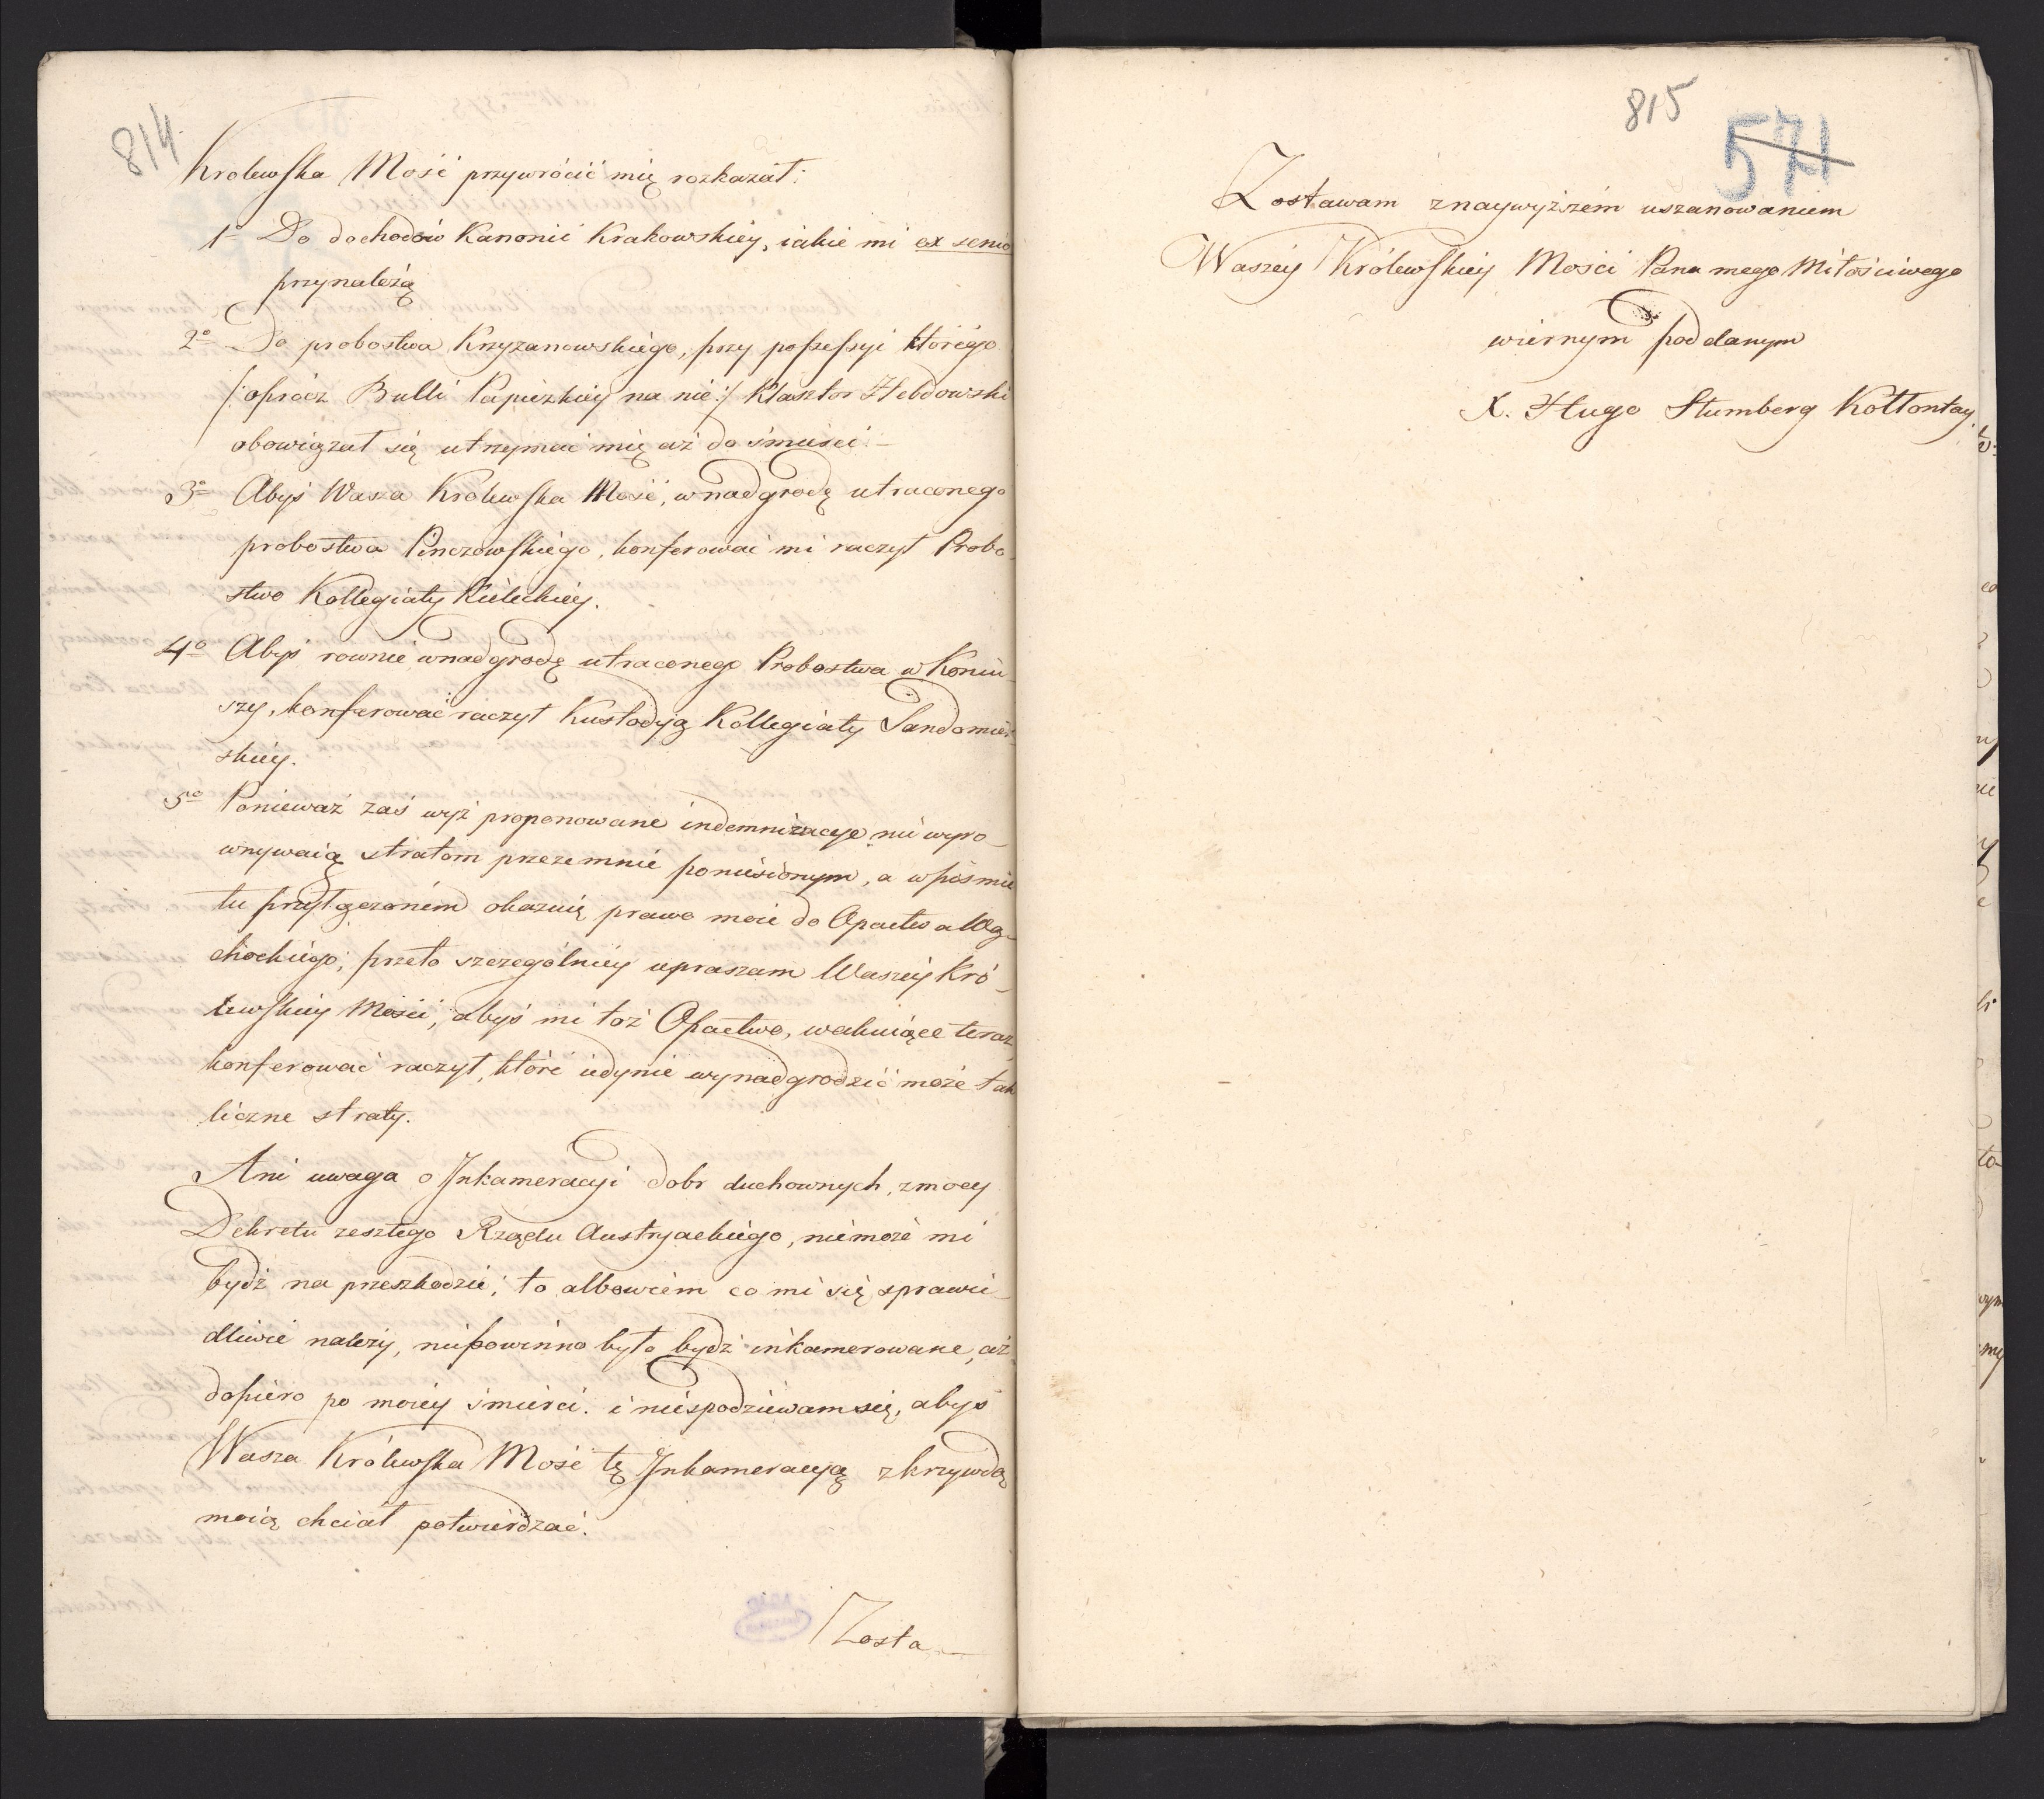 814
Krolewska Mość przywrócić mię rozkazał:
1º Do dochodów Kanonii Krakowskiey, iakie mi ex senio
przynależą
2º Do probostwa Krzyżanowskiego, przy possessyi którego
/: oprócz Bulli Papiezkiey na nie :/ Klasztor Hebdowski
obowiązał się utrzymać mię aż do śmierci. —
3º Abyś Wasza Krolewska Mość, wnadgrodę utraconego
probostwa Pinczowskiego, konferować mi raczył Probo-
stwo Kollegiaty Kieleckiey.
4º Abyś rownie wnadgrodę utraconego Probostwa w Koniu-
szy, konferować raczył Kustodyą Kollegiaty Sandomier-
skiey.
5º Ponieważ zaś wyż proponowane indemnizacye nie wyro-
wnywaią stratom przezemnie poniesionym, a w piśmie
tu przyłączoném okazuię prawo moie do Opactwa Wą-
chockiego; przeto szczególniey upraszam Waszey Kró-
lewskiey Mości, abyś mi toż Opactwo, wakuiące teraz,
konferować raczył, które iedynie wynadgrodzić może tak
liczne straty.
Ani uwaga o Inkameracyi dobr duchownych, zmocy
Dekretu zeszłego Rządu Austryackiego, niemoże mi
bydź na przeszkodzie; to albowiem co mi się sprawie-
dliwie należy, niepowinno było bydź inkamerowane, aż
dopiero po moiey śmierci. i niespodziewam się, abyś
Wasza Królewska Mość tę Inkameracyą zkrzywdą
moią chciał potwierdzać.
Zosta-
815
571
Zostawam znaywyższém uszanowaniem
Waszey Królewskiey Mości Pana mego Miłościwego
wiernym poddanym
X. Hugo Stumberg Kołłontay.